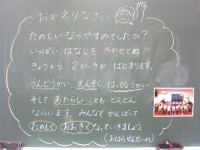 おかえりなさい
たのしいなつやすみでしたか？
いっぱいはなしをきかせてね！
きょうから2がっきがはじまります。
うんどうかい、えんそく、はっぴょうかい
そしてあたらしいこともどんどん
ならいます。みんなでがんばって
たのしくおおきくなっていきましょう。